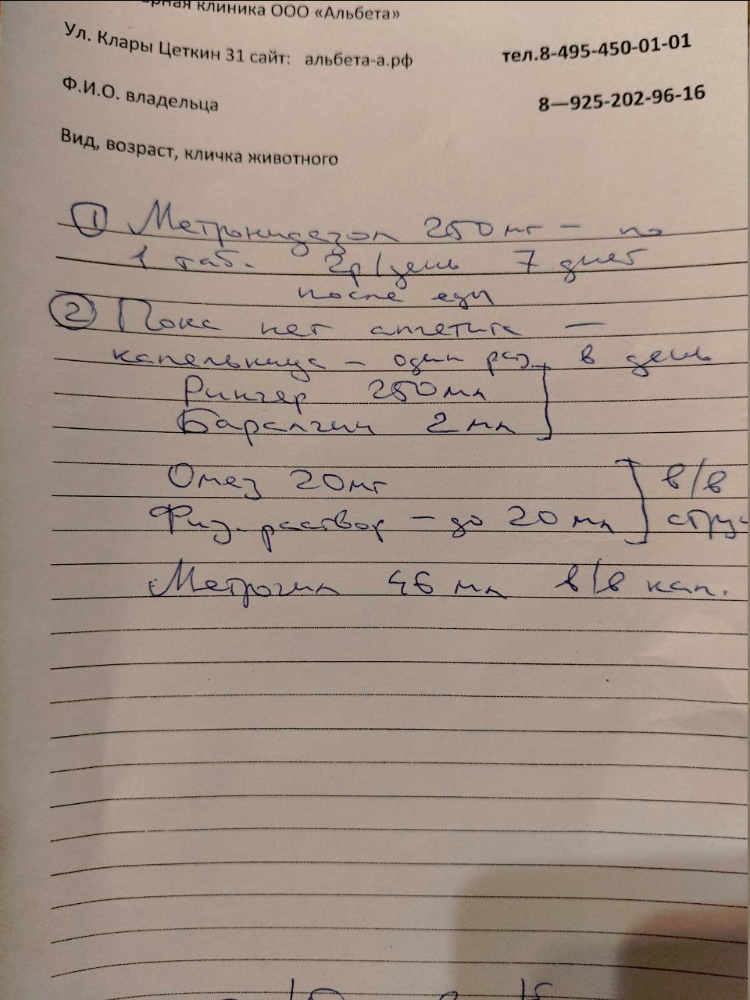 арная клиника ООО «Альбета»
Ул. Клары Цеткин 31 сайт: альбета-а.рф тел.8-495-450-01-01
Ф.И.О. владельца 8—925-202-96-16
Вид, возраст, кличка животного
① Метронидазол 250 мг – по
1 таб. 2р/день 7 дней
после еды
② Пока нет аппетита –
капельница – один раз в день
Рингер 250 мл
Баралгин 2 мл
Омез 20 мг в/в
Физ. раствор – до 20 мл стру
Метрогил 46 мл в/в кап.